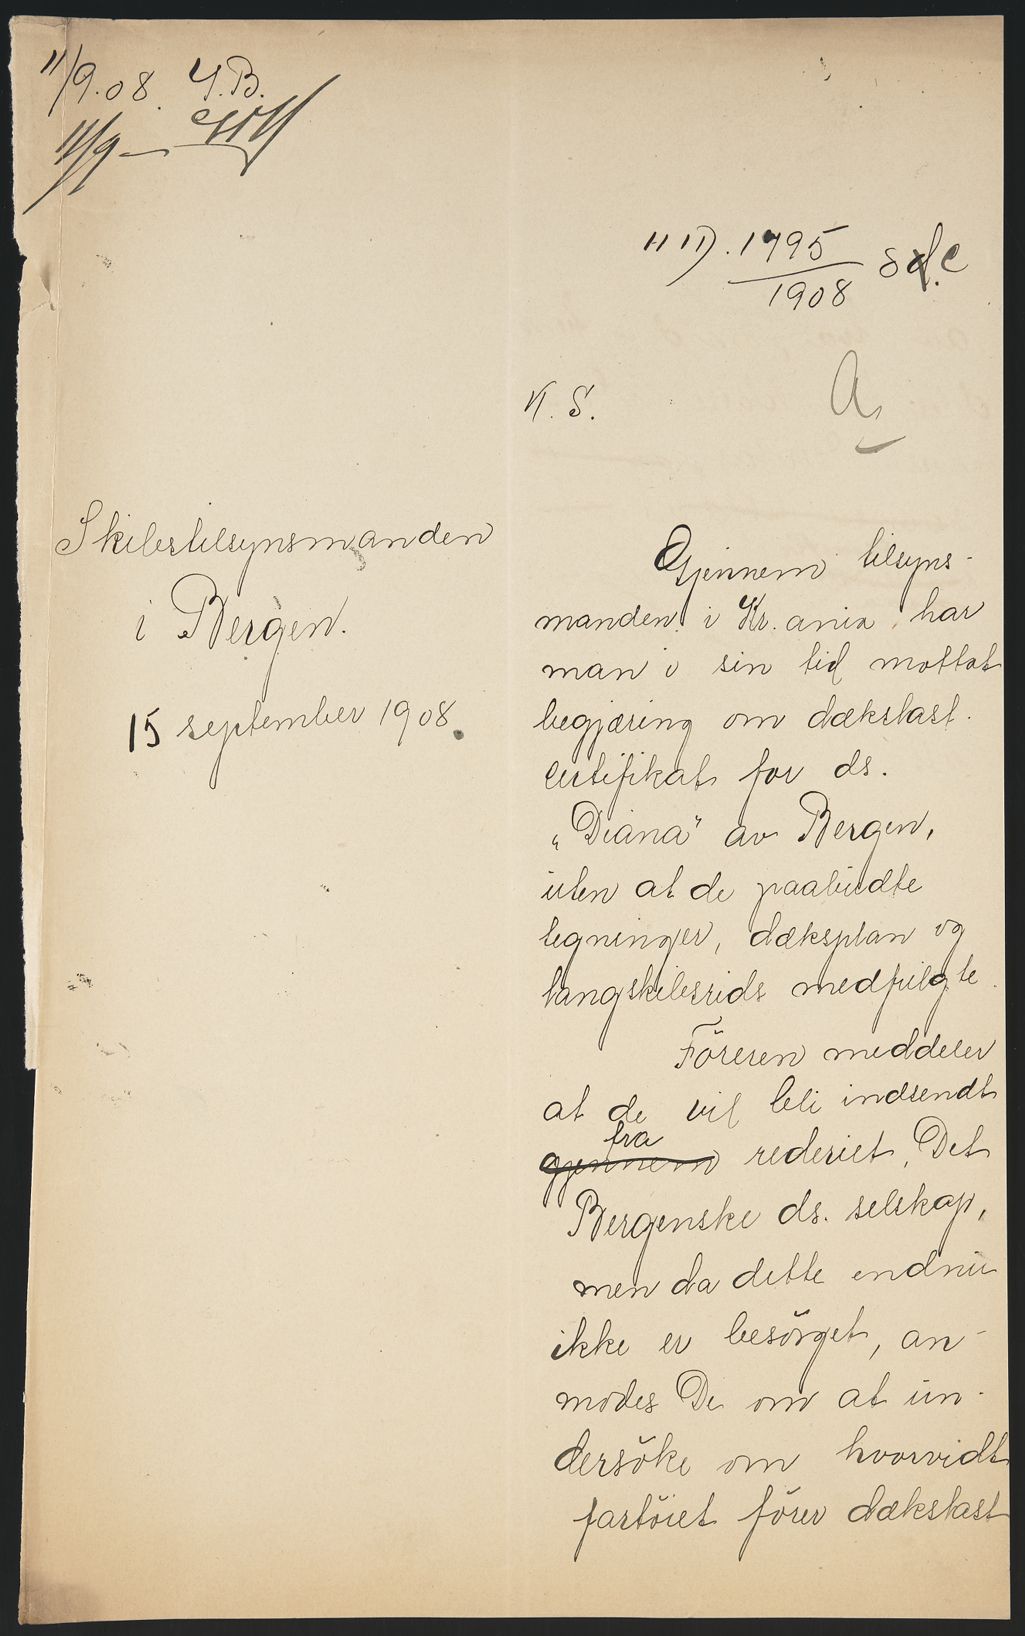 11/9.08. Y.B.
11/9 –
1795
1908
K. S.
A
Skibstilsynsmanden
i Bergen.
15 september 1908.
Gjennem tilsyns-
manden i Kr.ania har
man i sin tid mottat
begjæring om dækslast-
certifikat for ds.
"Diana" av Bergen,
uten at de paabudte
tegninger, dæksplan og
langskibsrids medfulgte.
Föreren meddeler
at de vil bli indsendt
fra
gjennem rederiet, Det
Bergenske ds. selskap,
men da dette endnu
ikke er besörget, an-
modes De om at un-
dersöke om hvorvidt
fartöiet förer dækslast